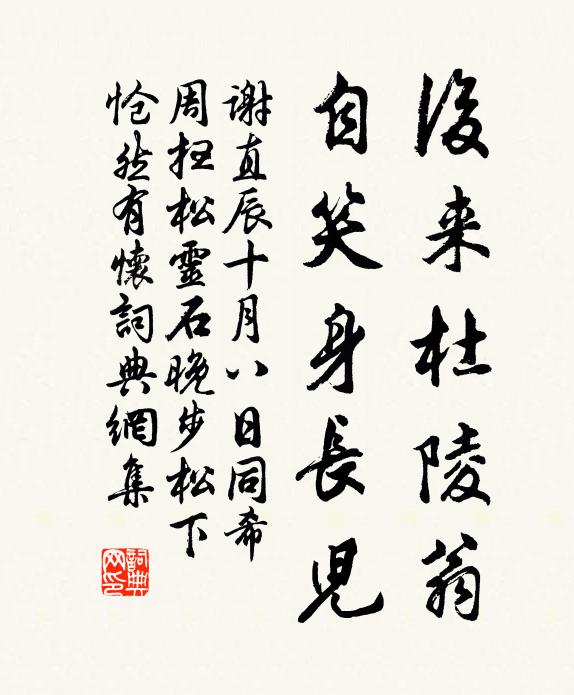 後来杜陵翁
自笑身長児
謝直辰十月八日同希
周扫松靈石晚步松下
怆然有懷詞典網集
詞典
网印